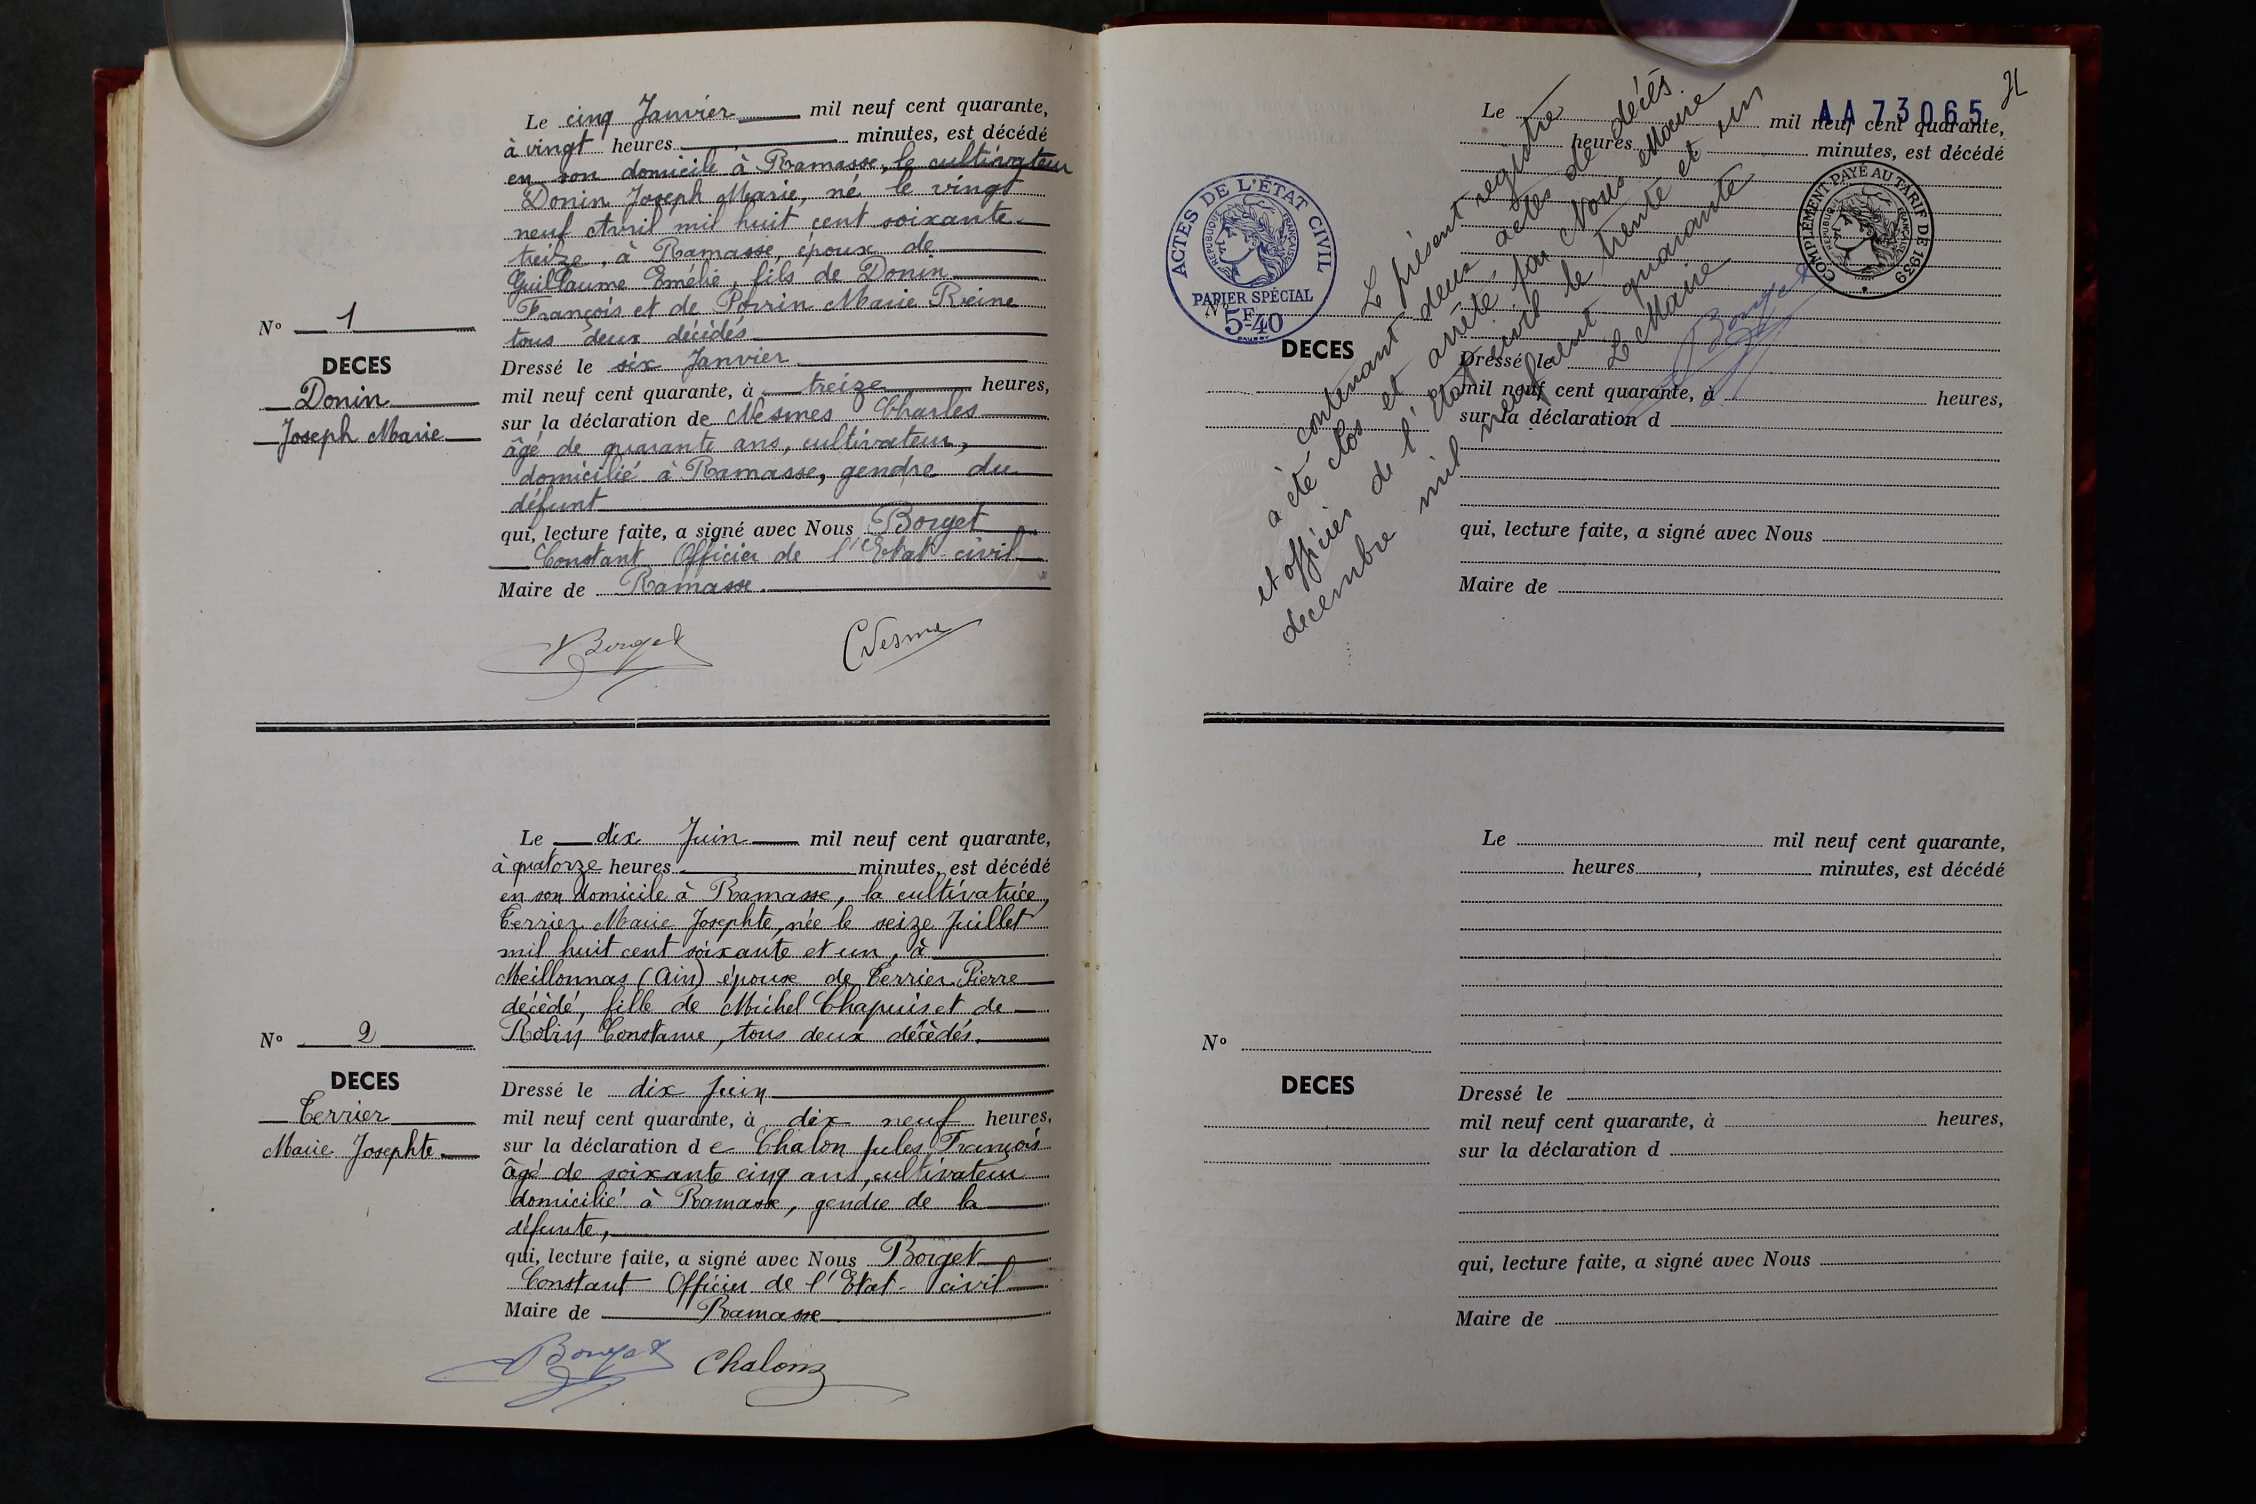 Le cinq Janvier mil neuf cent quarante,
à vingt heures minutes, est décédé
en son domicile à Ramasse, le cultivateur
Donin Joseph Marie, né le vingt
neuf Avril mil huit cent soixante
treize, à Ramasse, époux de
Guillaume Emélie, fils de Donin
François et de Perrin Marie Reine
tous deux décédés
N° 1
DECES
Donin
Joseph Marie
Dressé le six Janvier
mil neuf cent quarante, à treize heures,
sur la déclaration de Nesmes Charles
âgé de quarante ans, cultivateur,
domicilié à Ramasse, gendre du
défunt
qui, lecture faite, a signé avec Nous Borget
Constant Officier de l'Etat-civil
Maire de Ramasse.
Borget CNesme
Le dix Juin mil neuf cent quarante,
à quatorze heures minutes, est décédé
en son domicile à Ramasse, la cultivatrice,
Terrier Marie Josephte, née le seize Juillet
mil huit cent soixante et un, à
Meillonnas (Ain) épouse de Terrier Pierre
décédé, fille de Michel Chapuis et de
Robin Constance, tous deux décédés.
N° 2
DECES
Terrier
Marie Josephte
Dressé le dix Juin
mil neuf cent quarante, à dix neuf heures,
sur la déclaration de Chalon Jules François
âgé de soixante cinq ans, cultivateur
domicilié à Ramasse, gendre de la
défunte,
qui, lecture faite, a signé avec Nous Borget
Constant Officier de l'Etat-civil
Maire de Ramasse.
Borget Chalon
AA 73065
Le mil neuf cent quarante,
heures minutes, est décédé
ACTES DE L'ÉTAT CIVIL
RÉPUBLIQUE FRANÇAISE
PAPIER SPÉCIAL
5F40
COMPLÉMENT PAYÉ AU TARIF DE 1939
RÉPUBLIQUE FRANÇAISE
Le présent registre
contenant deux actes de décés
a été clos et arrêté par Nous Maire
et officier de l'Etat civil le trente et un
décembre mil neuf cent quarante
Le Maire
Borget
N°
DECES
Dressé le
mil neuf cent quarante, à heures,
sur la déclaration d
qui, lecture faite, a signé avec Nous
Maire de
Le mil neuf cent quarante,
heures, minutes, est décédé
N°
DECES
Dressé le
mil neuf cent quarante, à heures,
sur la déclaration d
qui, lecture faite, a signé avec Nous
Maire de